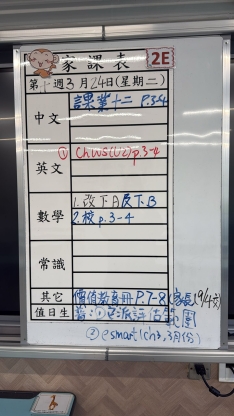 家課表 2E
第 週3月24日(星期二)
中文 課業十二 P.3-4
英文 ① Ch WS(U2) p.3-4
數學 1.改下A反下B
2.校 p.3-4
常識
其它 價值教育冊 P.7-8
值日生 ① 已派評估範圍
② esmart (ch3, 3月份)